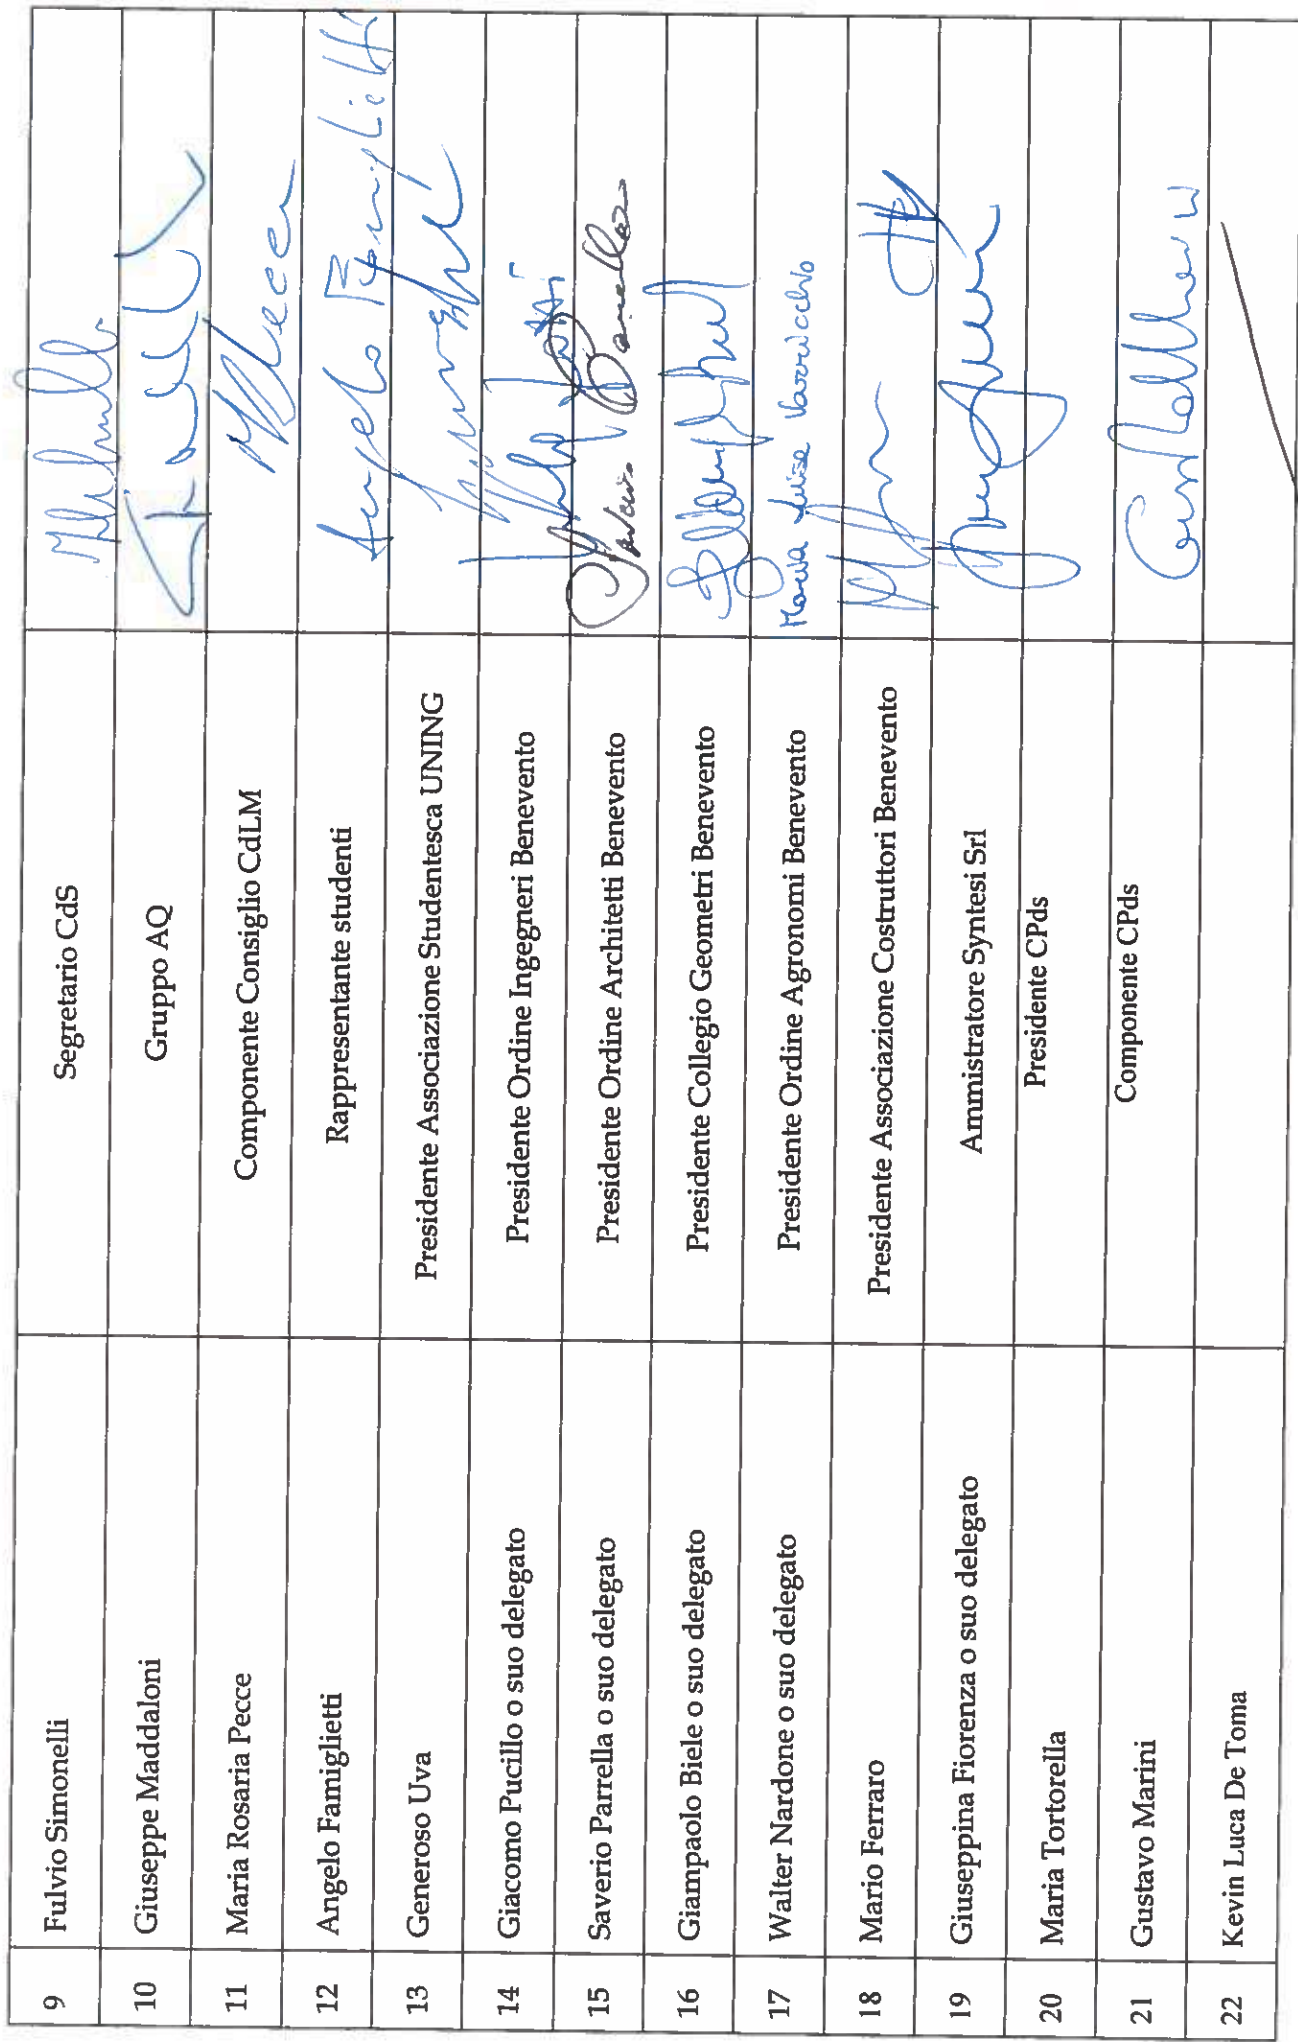 9 Fulvio Simonelli Segretario CdS
10 Giuseppe Maddaloni Gruppo AQ
11 Maria Rosaria Pecce Componente Consiglio CdLM MRPecce
12 Angelo Famiglietti Rappresentante studenti Angelo Famiglietti
13 Generoso Uva Presidente Associazione Studentesca UNING
14 Giacomo Pucillo o suo delegato Presidente Ordine Ingegneri Benevento
15 Saverio Parrella o suo delegato Presidente Ordine Architetti Benevento Saverio Parrella
16 Giampaolo Biele o suo delegato Presidente Collegio Geometri Benevento
17 Walter Nardone o suo delegato Presidente Ordine Agronomi Benevento Maria Luisa Varricchio
18 Mario Ferraro Presidente Associazione Costruttori Benevento
19 Giuseppina Fiorenza o suo delegato Ammistratore Syntesi Srl
20 Maria Tortorella Presidente CPds
21 Gustavo Marini Componente CPds
22 Kevin Luca De Toma